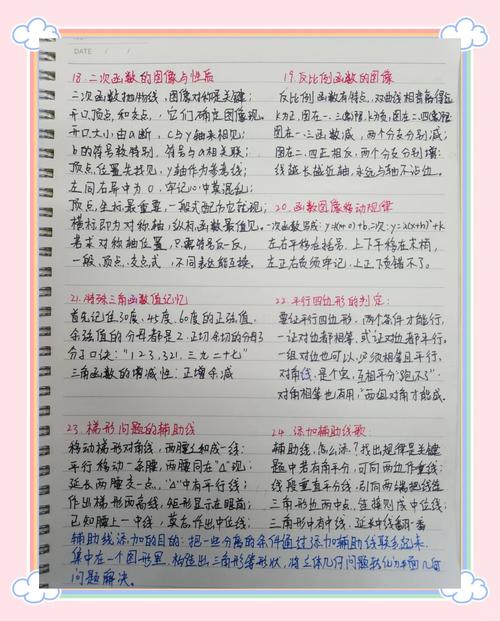 DATE / /
18.二次函数的图像与性质
二次函数抛物线，图像对称是关键；
开口、顶点和交点，它们确定图像现。
开口大小由a断，c与y轴来相见；
b的符号较特别，符号与a相关联；
顶点位置先找见，y轴作为参考线；
左同右异中为0，牢记心中莫混乱；
顶点坐标最重要，一般式配方它就现；
横标即为对称轴，纵标函数最值见。
若求对称轴位置，只需符号反一反，
一般、顶点、交点式，不同表达能互换。
19.反比例函数的图像
反比例函数有特点，双曲线相背离得远
k为正，图在一、三象限，k为负，图在二、四象限
图在一、三函数减，两个分支分别减；
图在二、四正相反，两个分支分别增；
线越长越近轴，永远与轴不沾边。
20.函数图像移动规律
一次函数写成：y=k(x+0)+b、二次：y=a(x+h)²+k
左右平移在括号，上下平移在末梢，
左正右负须牢记，上正下负错不了。
21.特殊三角函数值记忆
首先记住30度、45度、60度的正弦值、
余弦值的分母都是2、正切、余切的分母3
分子口诀："123，321，三九二十七"
三角函数的增减性：正增余减
22.平行四边形的判定：
要证平行四边形，两个条件才能行，
一证对边都相等，或证对边都平行，
一组对边也可以，必须相等且平行，
对角线，是个宝，互相平分"跑不了"，
对角相等也有用，"两组对角"才能成。
23.梯形问题的辅助线
移动梯形对角线，两腰之和成一线；
平行移动一条腰，两腰同在"△"现；
延长两腰交一点，"△"中有平行线；
作出梯形两高线，矩形显示在眼前；
已知腰上一中线，莫忘作出中位线；
24.添加辅助线歌：
辅助线，怎么添？找出规律是关键
题中若有角平分，可向两边作垂线；
线段垂直平分线，引向两端把线连
三角形边两中点，连接则成中位线；
三角形中有中线，延长中线翻一番
辅助线添加的目的：把一些分离的条件通过添加辅助线联系起来、
集中在一个图形里，构造出三角形等形状，将立体几何问题转化为平面几何
问题解决。